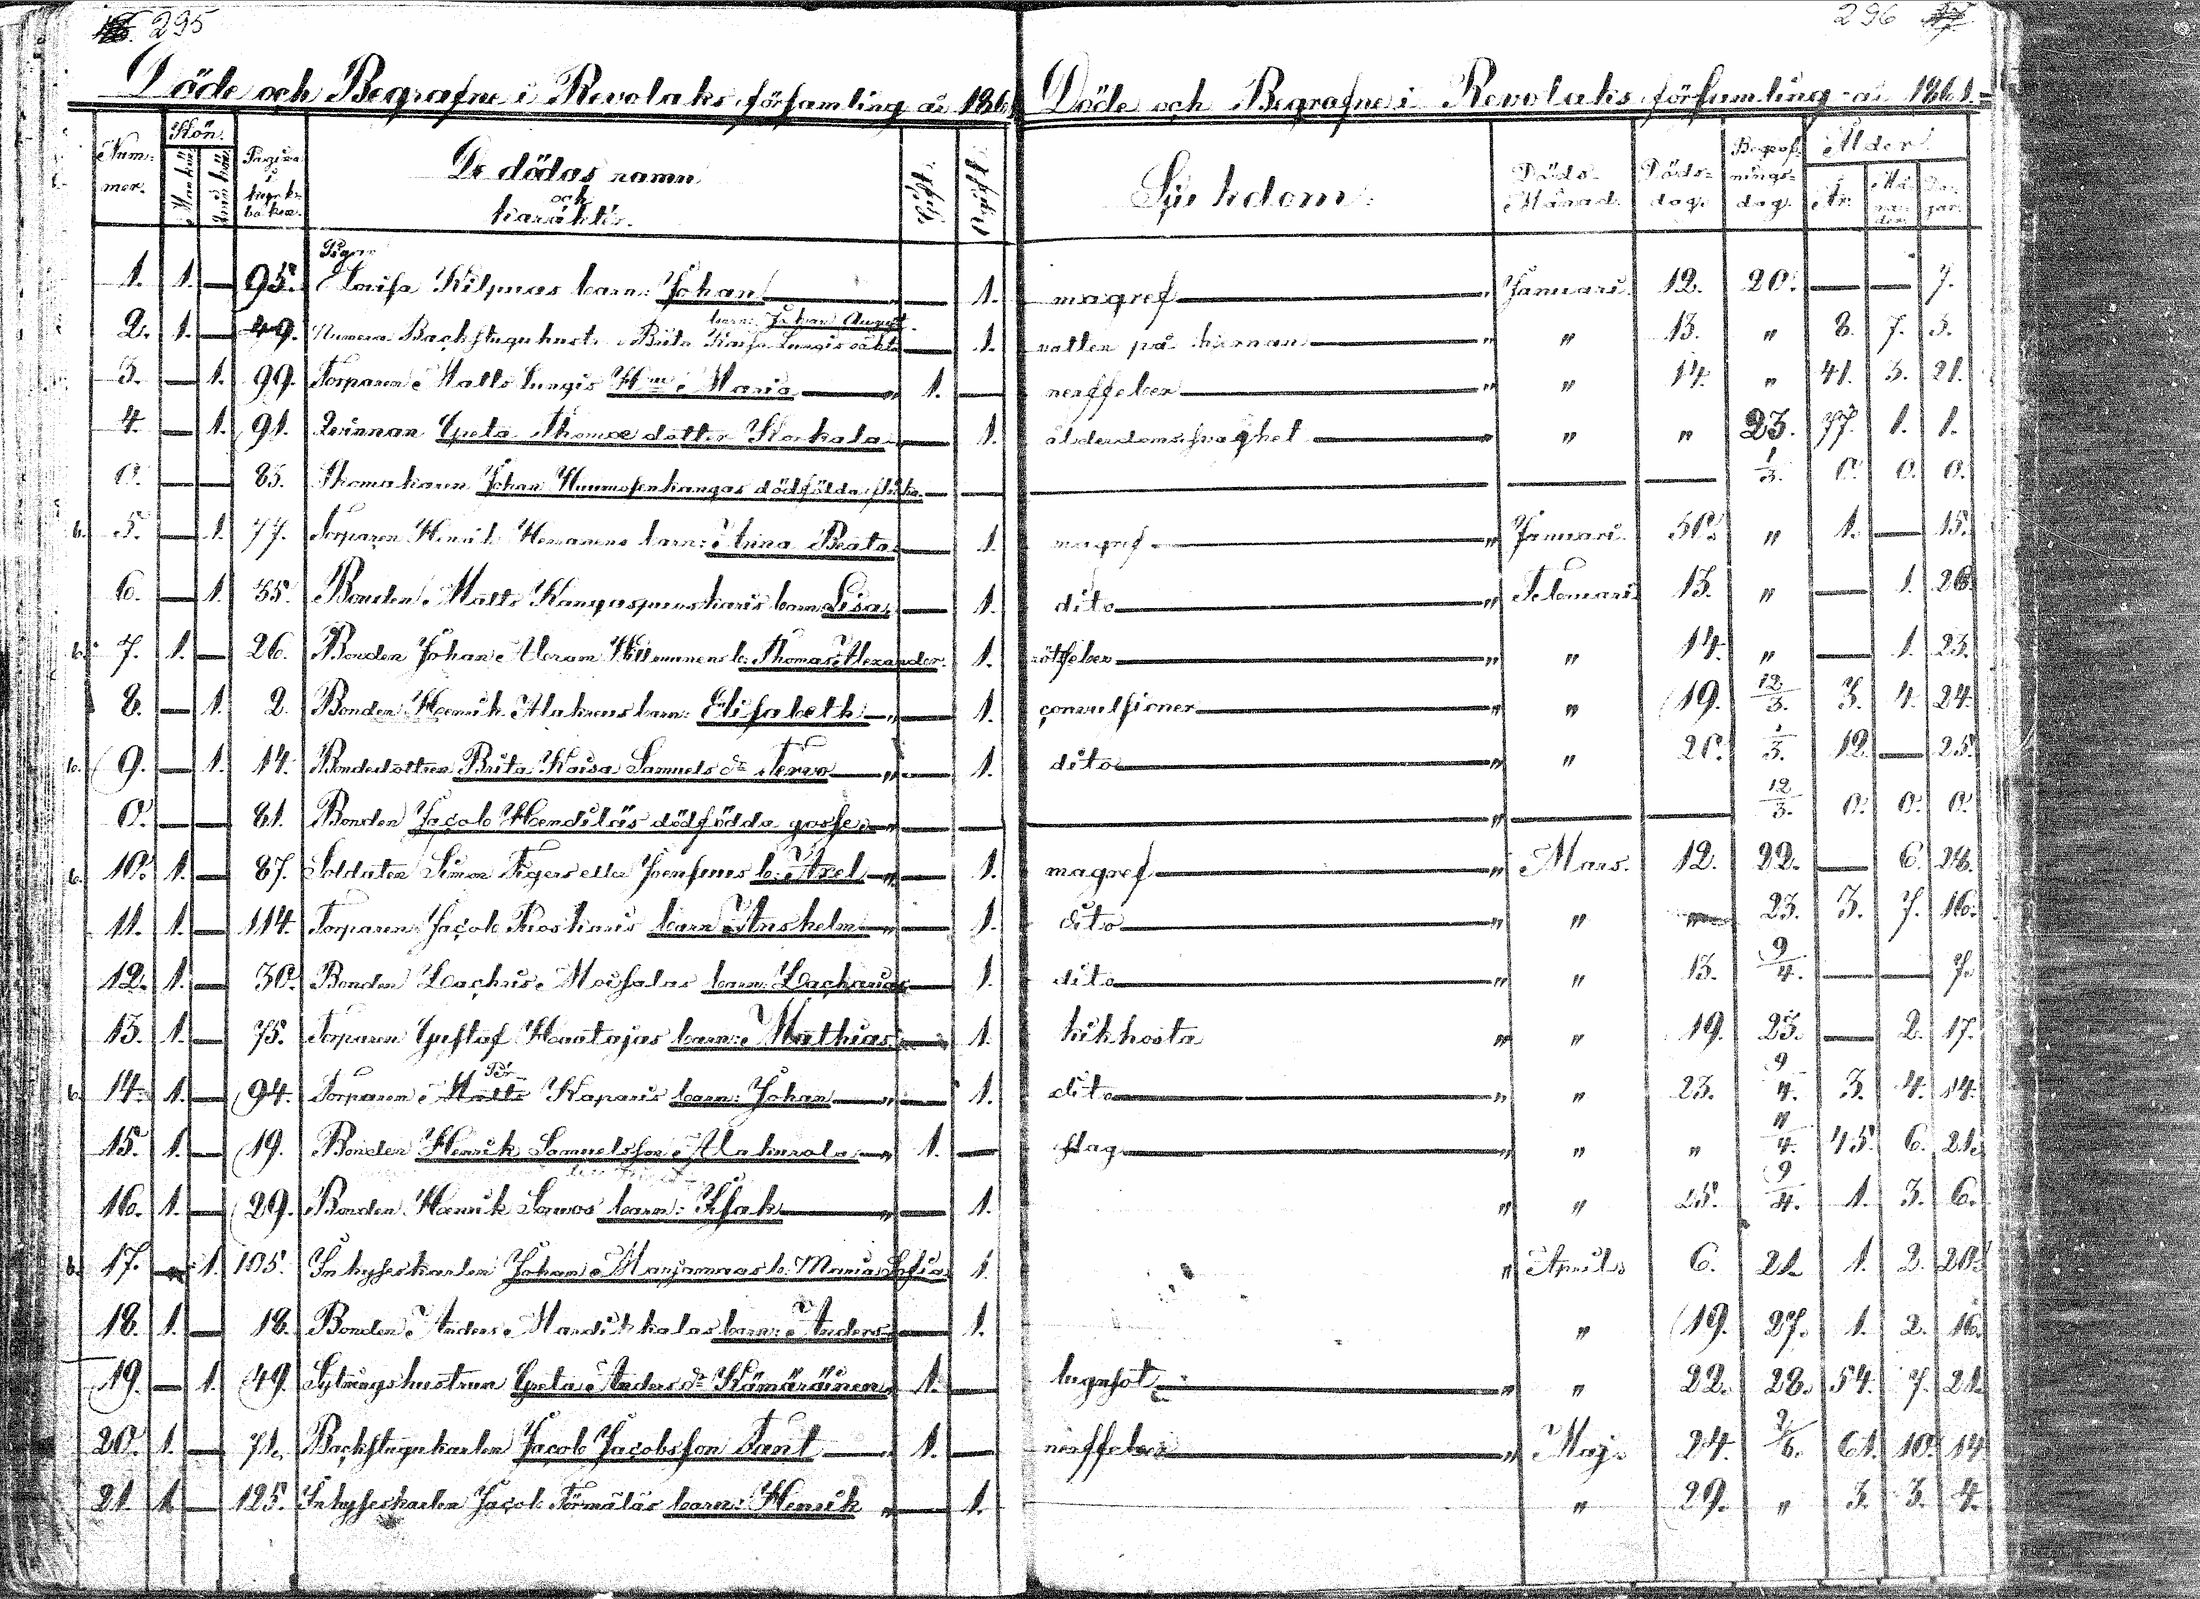 295
Döde och Begrafne i Revolaks församling år 1861
Num-
mer.
Kön.
Mankön
Qvinkön
Pagina
i
kyrko-
boken.
De dödas namn
och
karaktér.
Gifta
Ogifta
Pigan
1. 1. — 95. Lovisa Kilpuas barn: Johan „ — 1.
barn: Johan August
2. 1. — 49. Numera Backstuguhust. Brita Kaisa Lungis — 1.
3. — 1. 99. Torparen Matts Lungis H:u Maria „ 1. —
4. — 1. 91. Qvinnan Greta Thomæ dotter Korkala — 1.
0. — — 85. Johan dödfödda — —
b. 5. — 1. 77. Torparen Henrik Hermanens barn: Anna Beata — 1.
6. — 1. 35. Bonden Matts barn Lisa — 1.
b. 7. 1. — 26. Bonden Johan Abram b: Thomas Alexander. 1.
8. — 1. 2. Bonden Henrik Alakeus barn: Elisabeth „ — 1.
b. 9. — 1. 14. Bondedottren Brita Kaisa Samuels dr Tervo „ — 1.
0. — — 81. Bonden Jacob Hendiläs dödfödda gosse „ — —
b. 10. 1. — 87. Soldaten Simon Tigers eller Joensuus b: Axel „ 1.
11. 1. — 114. Torparen Jacob Ruoskaris barn Anshelm „ 1.
12. 1. — 30. Bonden Zachris barn: Zacharias 1.
13. 1. — 75. Torparen Gustaf Haatajas barn: Mathias — 1.
Per
b. 14. 1. — 94. Torparen Matts Kaparis barn: Johan „ — 1.
15. 1. — 19. Bonden Henrik Samuelsson Alakurola „ 1. —
16. 1. — 29. Bonden Henrik Savos barn: Isak „ — 1.
b. 17. — 1. 105. Inhyseskarlen Johan Marjamaas b: Maria Sofia 1.
18. 1. — 18. Bonden Anders barn: Anders — 1.
19. — 1. 49. Sytningshustrun Greta Anders dr Kämäräinen 1. —
20. 1. — 71. Backstugukarlen Jacob Jacobsson Fant — 1. —
21. 1. — 125. Inhyseskarlen Jacob Törmäläs barn: Henrik „ — 1.
296
Döde och Begrafne i Revolaks församling år 1861.
Sjukdom.
Döds-
Månad.
Döds-
dag.
Begraf-
nings-
dag.
Ålder.
År.
Må-
na-
der.
Da-
gar.
magref „ Januari. 12. 20. — — 7.
vatten på hjernan „ „ 13. „ 8. 7. 5.
nerffeber „ „ 14. „ 41. 3. 21.
ålderdomssvaghet „ „ 23. 77. 1. 1.
— — 1/3. 0. 0. 0.
magref „ Januari. 30. „ 1. — 15.
dito „ Februari 13. „ — 1. 26
rötfeber „ „ 14. „ — 1. 23.
convulsioner „ „ 19. 12/3. 3. 4. 24.
dito „ „ 20. 1/3. 12. — 25.
„ — — 12/3. 0. 0. 0.
magref „ Mars. 12. 22. — 6. 28.
dito „ „ „ 23. 3. 7. 16.
dito „ „ 13. 9/4. — — 7.
kikhosta „ „ 19. 23. — 2. 17.
dito „ „ 23. 9/4. 3. 4. 14.
slag „ „ „ 11/4. 45. 6. 21.
„ „ 25. 9/4. 1. 3. 6.
„ April 6. 21. 1. 2. 20.
„ 19. 27. 1. 2. 16.
lugnsot „ „ 22. 28. 54. 7. 21.
nerffeber „ Maj. 24. 2/6. 61. 10. 14
„ 29. „ 3. 3. 4.